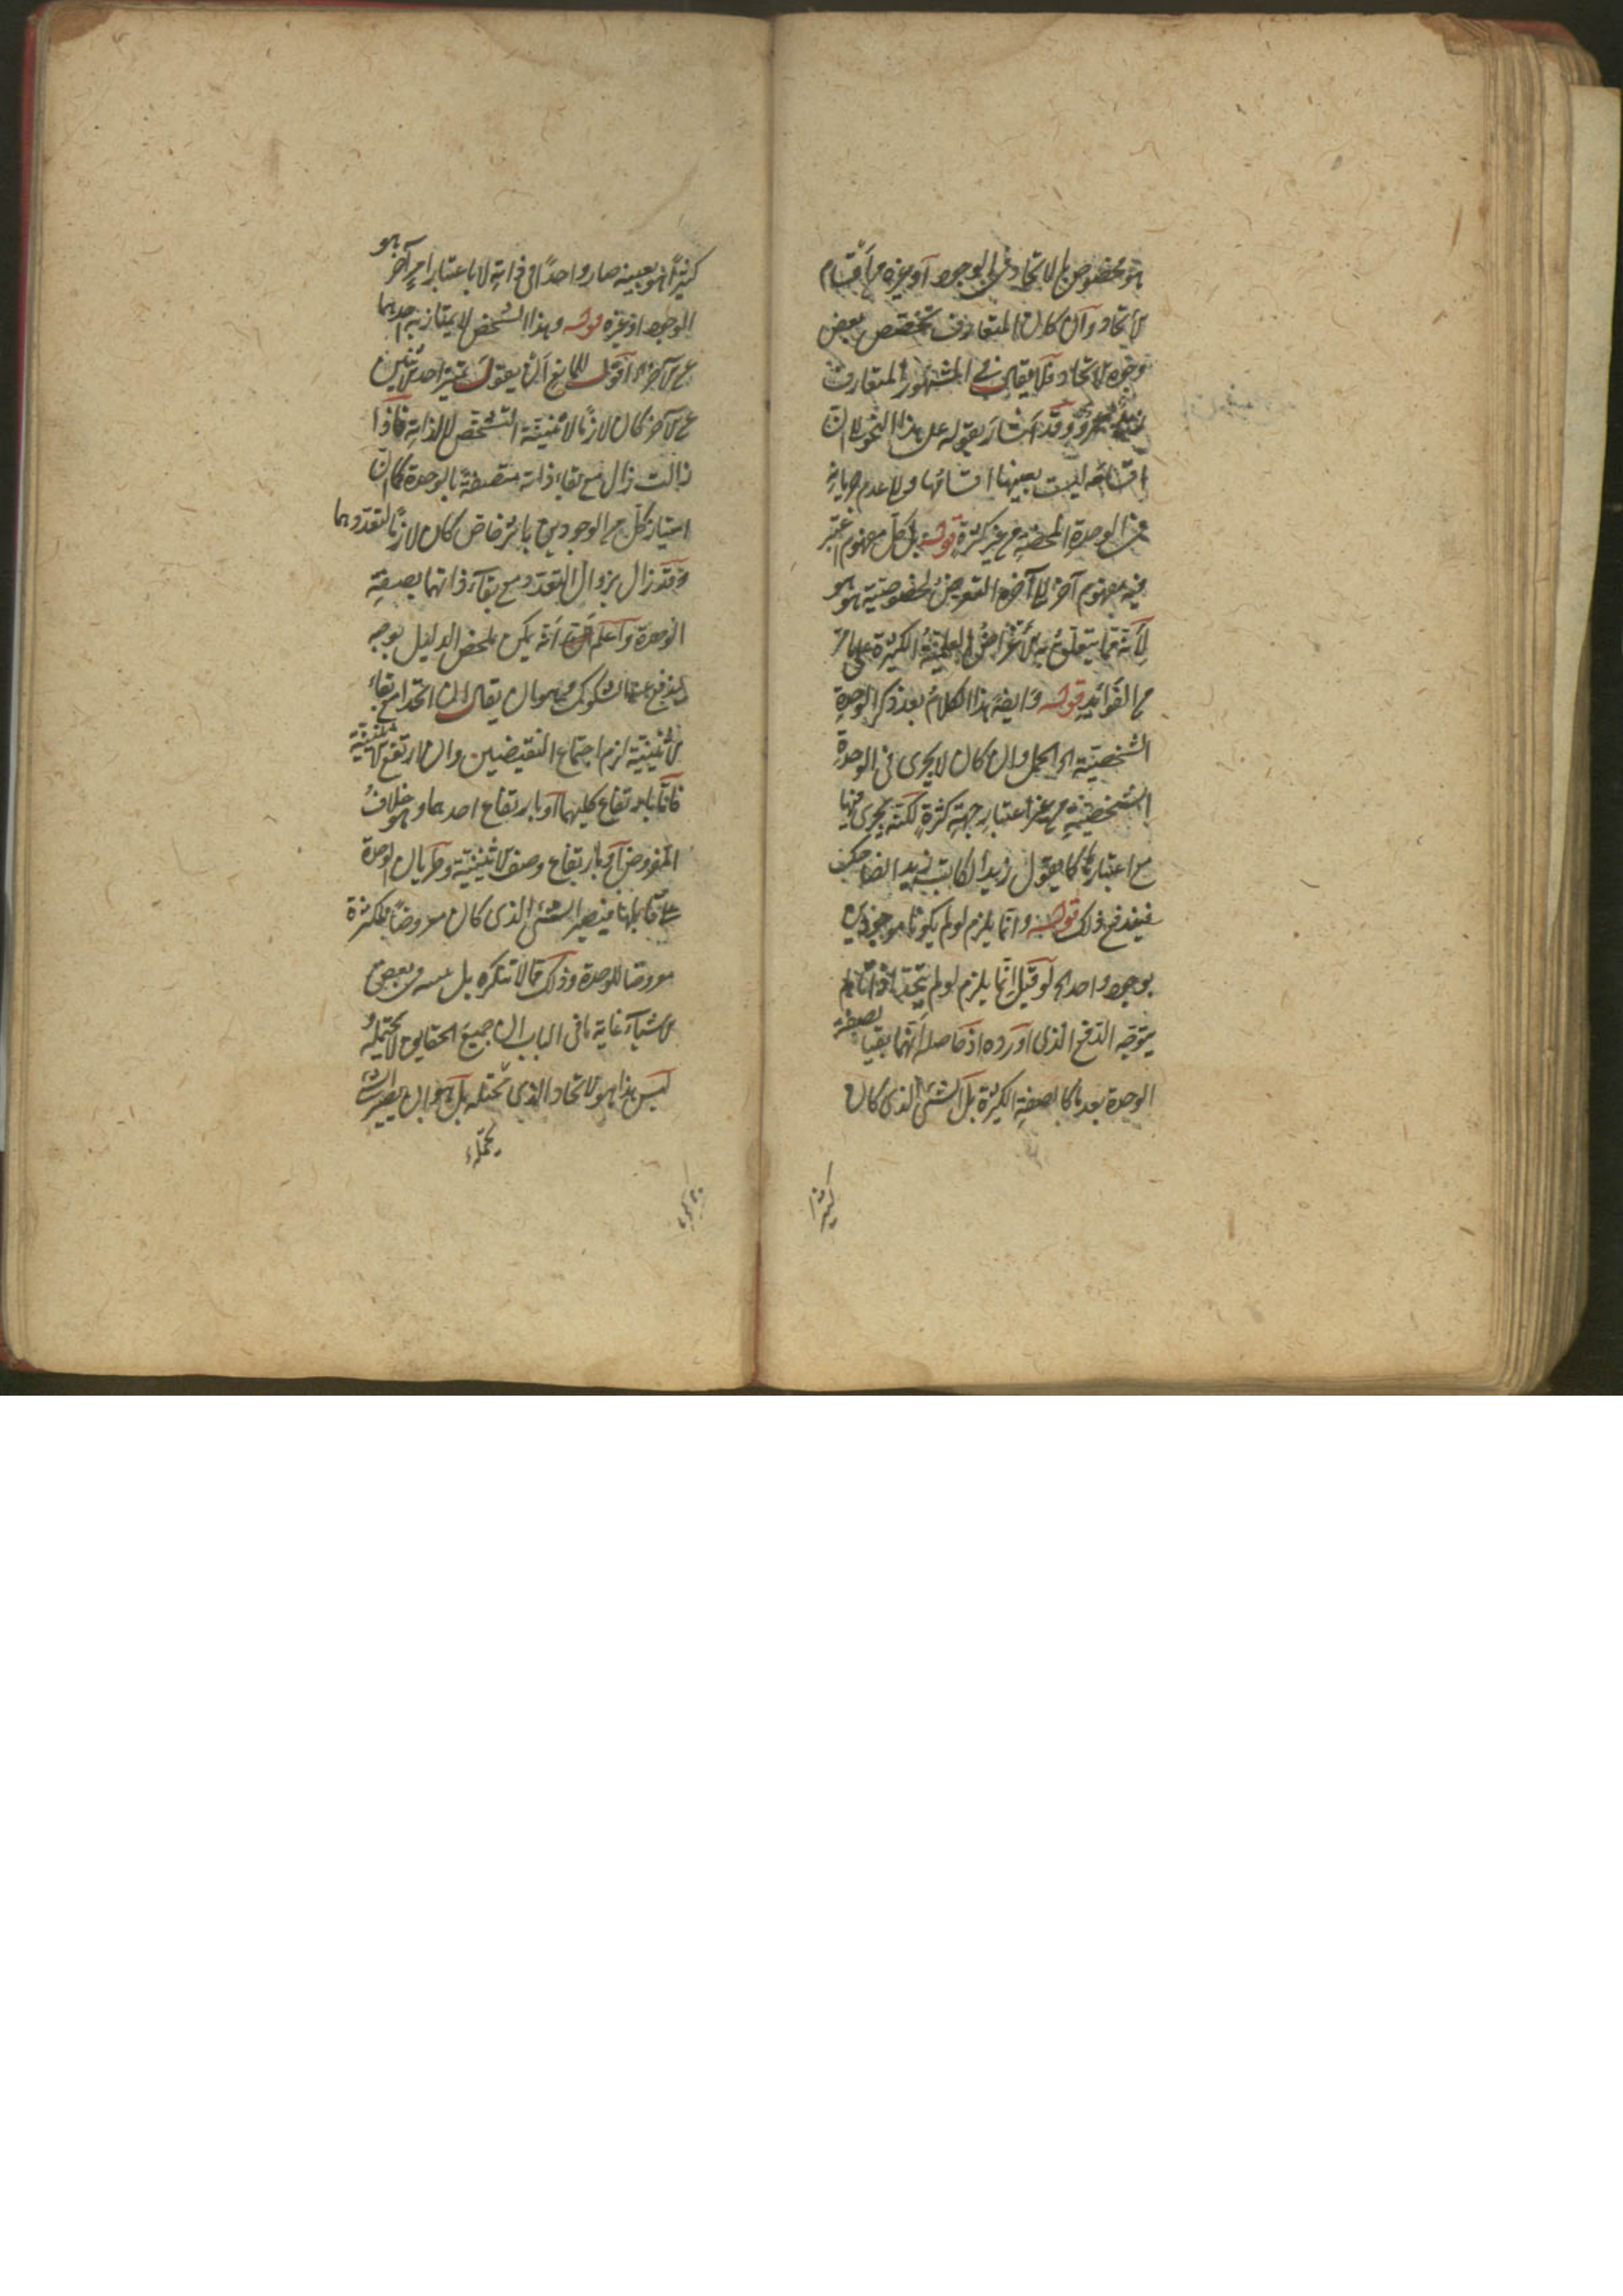 هو مخصوص بالاتحاد في الوجود أو يعمه من أقسام
الاتحاد وان كان المتعارف تخصص ببعض
وجوه الاتحاد فلا يقال في المشهور المتعارف
زيد عمرو وقد اشار بقوله على هذا النحو لان
اقسامه ليست بعينها اقسامها ولا عدم جريانه
في الوحدة المحضة من غير كثرة قوله بل كل مفهوم اعتبر
فيه مفهوم آخر الى آخره التعرض لخصوصية هو هو
لأنه مما يتعلق به الأغراض العلمية الكثيرة
من الفوائد قوله وايضا هذا الكلام بعد ذكر الوحدة
الشخصية الحمل وان كان لا يجرى في الوحدة
الشخصية من غير اعتبار جهة كثرة لكنه يجرى فيها
مع اعتبارها كما يقول زيد الكاتب زيد الضاحك
فيندفع ذلك قوله وانما يلزم لو لم يكونا موجودين
بوجود واحد لو قيل انما يلزم لو لم يتحد ذاتاهما لم
يتوجه الدفع الذى اورده اذ حاصله انهما بقيا بصفة
الوحدة بعد ما كانا بصفة الكثرة بل الشئ الذى كان
كثيرا
كثيرا فهو بعينه صار واحدا في ذاته لا باعتبار امر آخر هو
الوجود او غيره قوله وهذا التشخص لا يمتاز به احدهما
عن الآخر اقول للمانع ان يقول تميز احد الاثنين
عن الآخر كان لازما لاثنينية التشخص لا لذاته فاذا
زالت زال مع بقاء ذاته متصفة بالوحدة كما ان
امتياز كل من الوجودين باثر خاص كان لازما لتعددهما
وقد زال بزوال التعدد مع بقاء ذاتهما بصفة
الوحدة واعلم انه يمكن تلخيص الدليل بوجه
يندفع عنه الشكوك وهو ان يقال ان اتحدا مع بقاء
الاثنينية لزم اجتماع النقيضين وان ارتفع الاثنينية
فاما بارتفاع كليهما أو بارتفاع احدهما وهو خلاف
المفروض أو بارتفاع وصف الاثنينية وطريان الوحدة
على قابلهما فيصير الشئ الذى كان معروضا للكثرة
معروضا للوحدة وذلك مما لا ننكره بل في بعض
الاشياء غاية ما في الباب ان جميع الحقايق لا تحتمله
ليس هذا هو الاتحاد الذى نحيله بل هو ان يصير الشئ